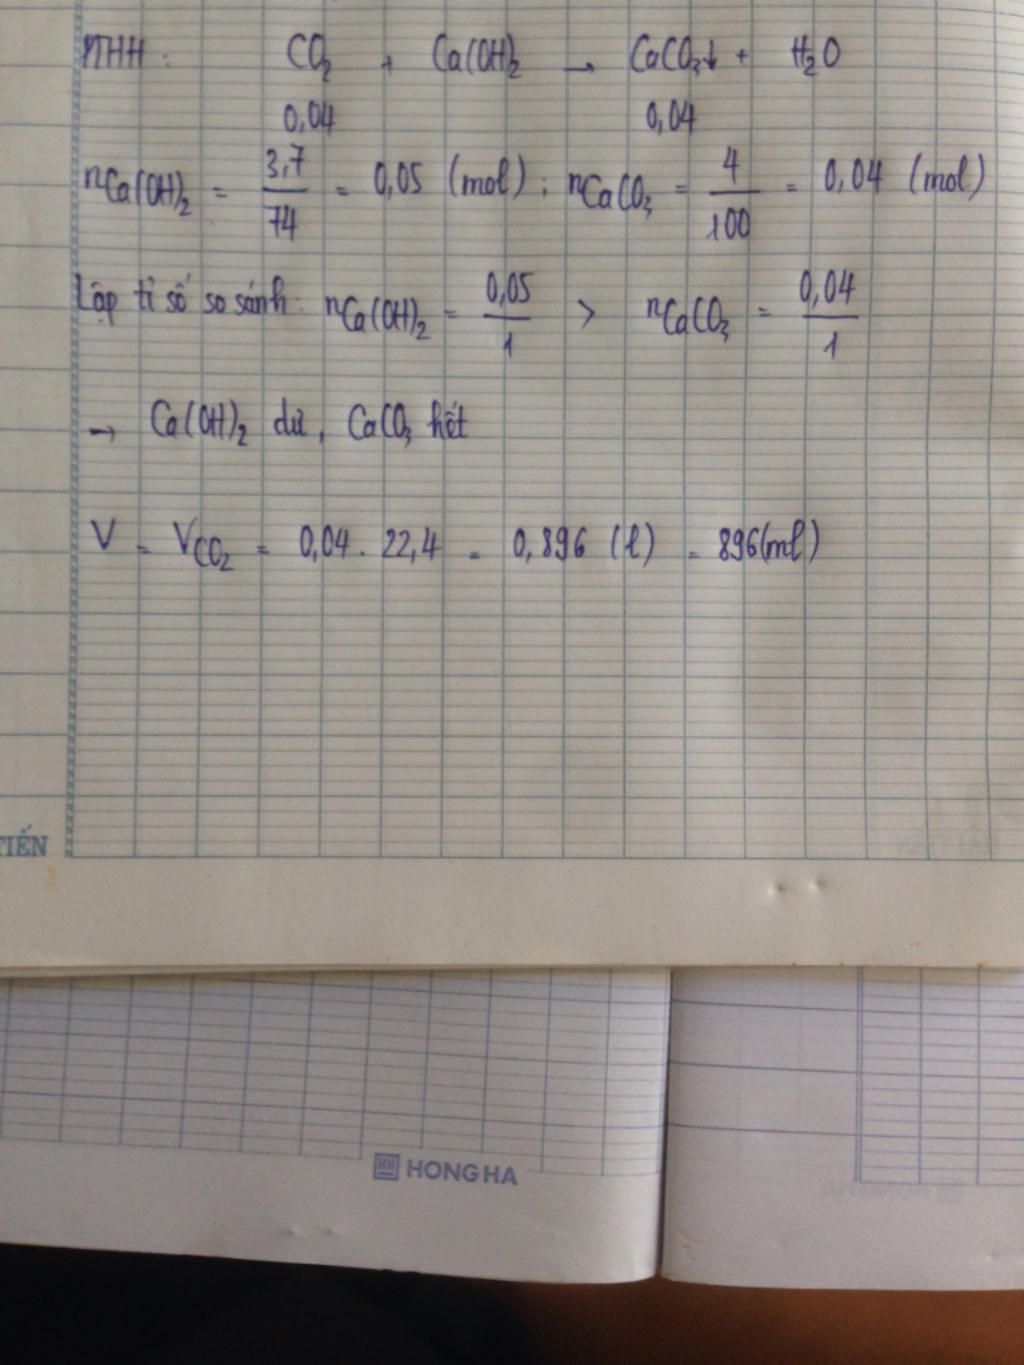 PTHH : CO₂ + Ca(OH)₂ → CaCO₃↓ + H₂O
0,04 0,04
nCa(OH)₂ = 3,7/74 = 0,05 (mol) ; nCaCO₃ = 4/100 = 0,04 (mol)
Lập tỉ số so sánh : nCa(OH)₂ = 0,05/1 > nCaCO₃ = 0,04/1
→ Ca(OH)₂ dư, CaCO₃ hết
V = VCO₂ = 0,04 . 22,4 = 0,896 (l) = 896(ml)
TIẾN
HONG HA